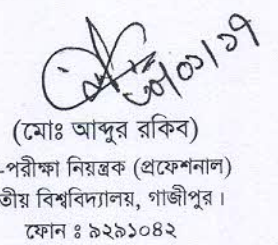 ৩০/০১/১৭
(মোঃ আব্দুর রকিব)
-পরীক্ষা নিয়ন্ত্রক (প্রফেশনাল)
তীয় বিশ্ববিদ্যালয়, গাজীপুর।
ফোন ঃ ৯২৯১০৪২